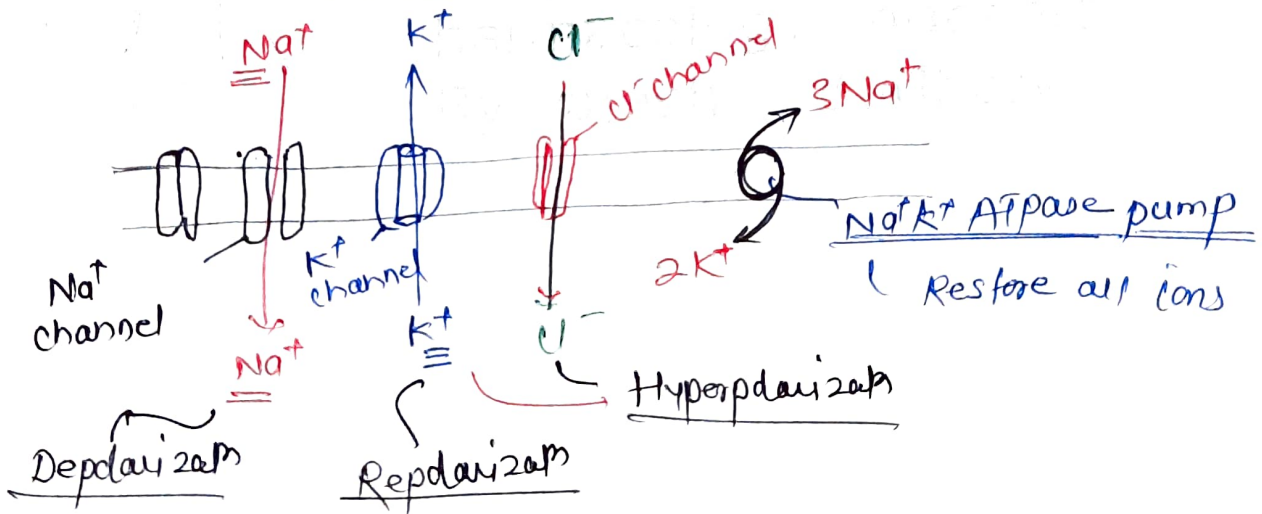 Na⁺
K⁺
Cl⁻
Cl⁻ channel
3Na⁺
Na⁺K⁺ ATPase pump
2K⁺
Restore all ions
Na⁺
channel
K⁺
channel
Na⁺
K⁺
Cl⁻
Hyperpolarizatn
Depolarizatn
Repolarizatn